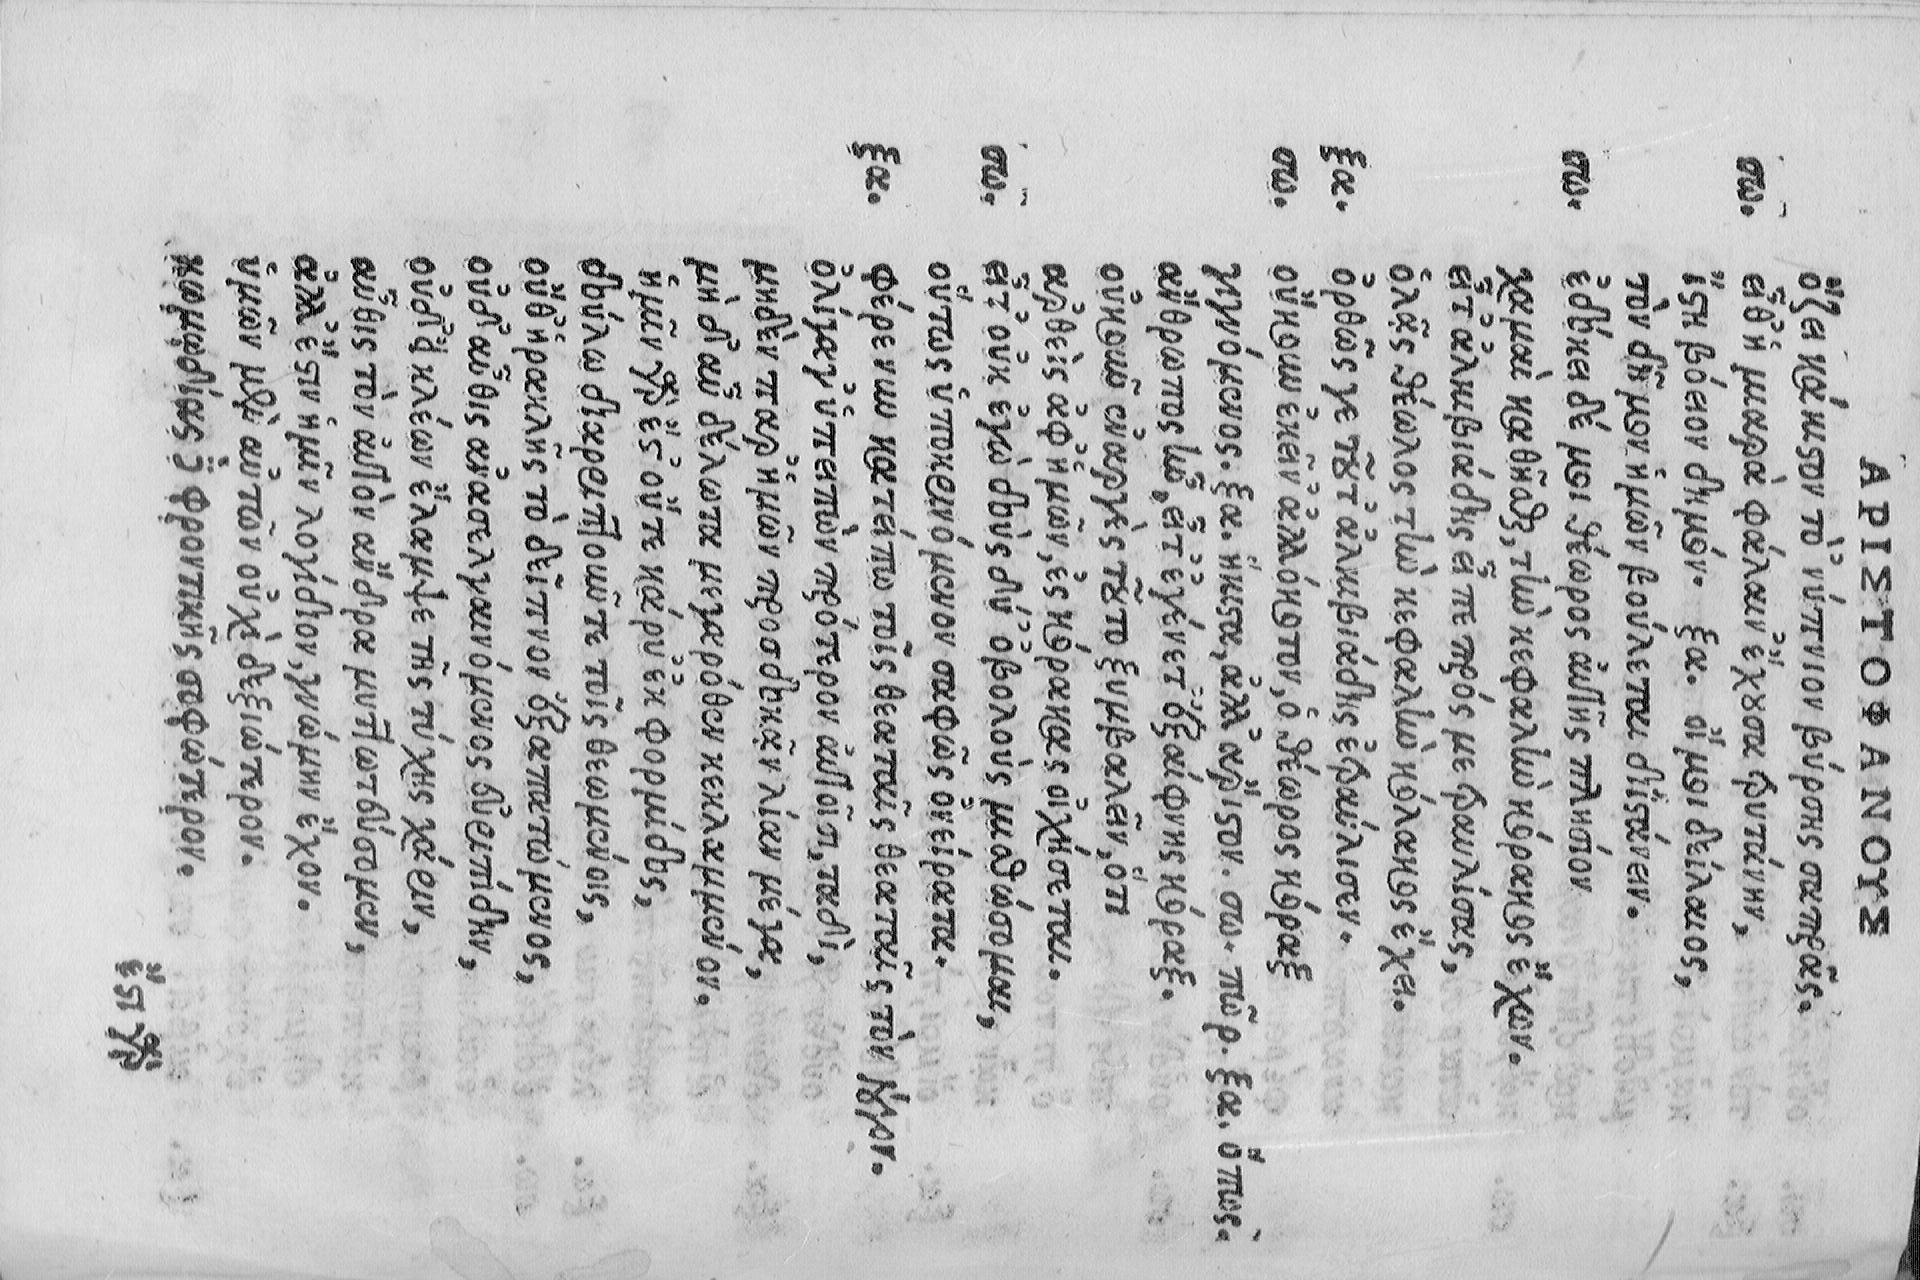 ΑΡΙΣΤΟΦΑΝΟΥΣ
ὄζει κάκιστον τὸ νύπνιον βύρσης σαπρᾶς.
σω. εἶθ' ἡ μιαρὰ φάλαιν' ἔχουσα τρυτάνην,
ἵστη βόειον δημόν. ξα. οἴμοι δείλαιος,
τὸν δῆμον ἡμῶν βούλεται διϊστάνειν.
σω. ἐδόκει δέ μοι θέωρος αὐτῆς πλησίον
χαμαὶ καθῆσθαι, τὴν κεφαλὴν κόρακος ἔχων.
εἶτ' ἀλκιβιάδης εἶπε πρός με τραυλίσας,
ὁλᾷς θέωλος τὴν κεφαλὴν κόλακος ἔχει.
ξα. ὀρθῶς γε τοῦτ' ἀλκιβιάδης ἐτραύλισεν.
σω. οὔκουν ἐκεῖν' ἀλλόκοτον, ὁ θέωρος κόραξ
γιγνόμενος. ξα. ἥκιστα, ἀλλ' ἄριστον. σω. πῶρ. ξα. ὅπως.
ἄνθρωπος ὢν, εἶτ' ἐγένετ' ἐξαίφνης κόραξ.
οὔκουν ἐναργὲς τοῦτο ξυμβαλεῖν, ὅτι
ἀρθεὶς ἀφ' ἡμῶν, ἐς κόρακας οἰχήσεται.
σω. εἶτ' οὐκ ἐγὼ δοὺς δύ' ὀβολοὺς μισθώσομαι,
οὕτως ὑποκρινόμενον σαφῶς ὀνείρατα.
ξα. φέρε νῦν κατείπω τοῖς θεαταῖς τὸν λόγον.
ὀλίγα γ' ὑπειπὼν πρότερον αὐτοῖσι, ταδὶ,
μηδὲν παρ' ἡμῶν προσδοκᾶν λίαν μέγα,
μηδ' αὖ γέλωτα μεγαρόθεν κεκλαμμένον.
ἡμῖν γὰρ ἔστ' οὔτε κάρυ' ἐκ φορμίδος,
δούλω διαριπτοῦντε τοῖς θεωμένοις,
οὔθ' ἡρακλῆς τὸ δεῖπνον ἐξαπατώμενος,
οὐδ' αὖθις ἀνασελγαινόμενος εὐριπίδην,
οὐδ' εἰ κλέων ἔλαμψε τῆς τύχης χάριν,
αὖθις τὸν αὐτὸν ἄνδρα μυττωτεύσομεν,
ἀλλ' ἔστιν ἡμῖν λογίδιον, γνώμην ἔχον.
ὑμῶν μὲν αὐτῶν οὐχὶ δεξιώτερον.
κωμῳδίας δὲ φορτικῆς σοφώτερον.
ἔστι γὰρ